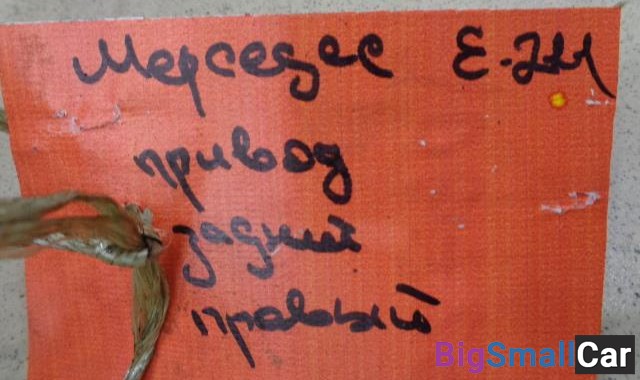 Мерседес Е-211
привод
задний
правый
BigSmallCar